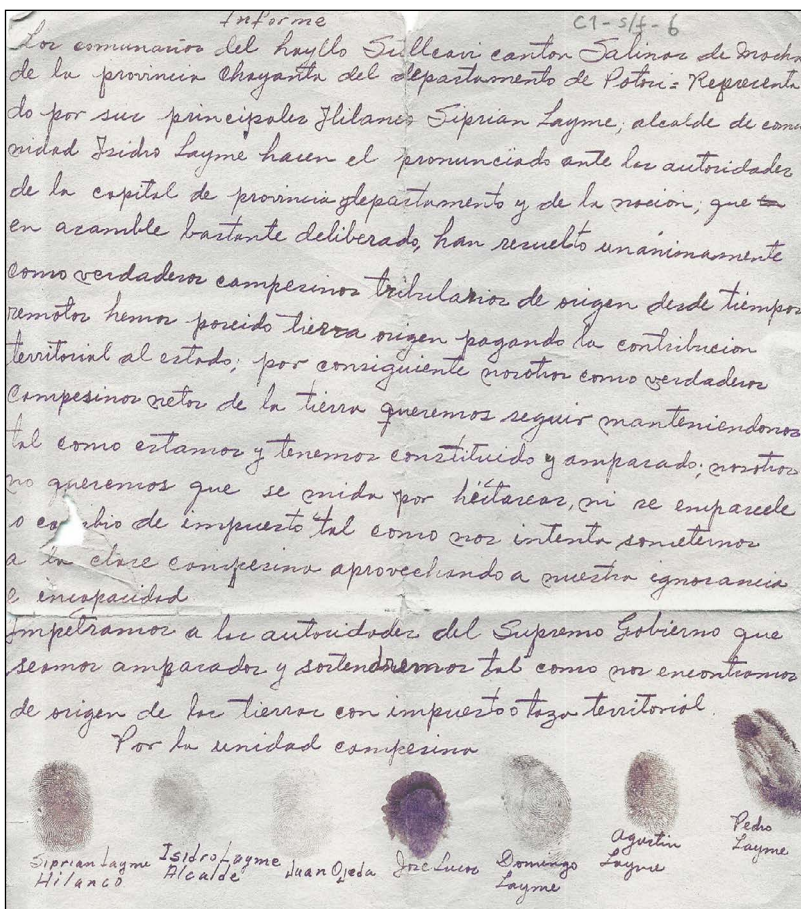 Informe
C1-s/f-6
Los comunarios del hayllo Sullcavi canton Salinas de Macha
de la provincia Chayanta del departamento de Potosi = Representa
do por sus principales Hilanco Siprian Layme, alcalde de comu
nidad Isidro Layme hacen el pronunciado ante las autoridades
de la capital de provincia, departamento y de la nacion; que
en asamble bastante deliberado, han resuelto unanimamente
como verdaderos campesinos tribularios de origen desde tiempos
remotos hemos poseido tierra origen pagando la contribucion
territorial al estado; por consiguiente nosotros como verdaderos
campesinos netos de la tierra queremos seguir manteniendonos
tal como estamos y tenemos constituido y amparado; nosotros
no queremos que se mida por héctareas, ni se emparcele
o cambio de impuesto tal como nos intenta someternos
a la clase campesina aprovechando a nuestra ignorancia
e encapacidad
Impetramos a las autoridades del Supremo Gobierno que
seamos amparados y sostendremos tal como nos encontramos
de origen de las tierras con impuesto taza territorial.
Por la unidad campesina
Siprian Layme Isidro Layme Juan Ojeda Jose Lucas Domingo Agustin Pedro
Hilanco Alcalde Layme Layme Layme